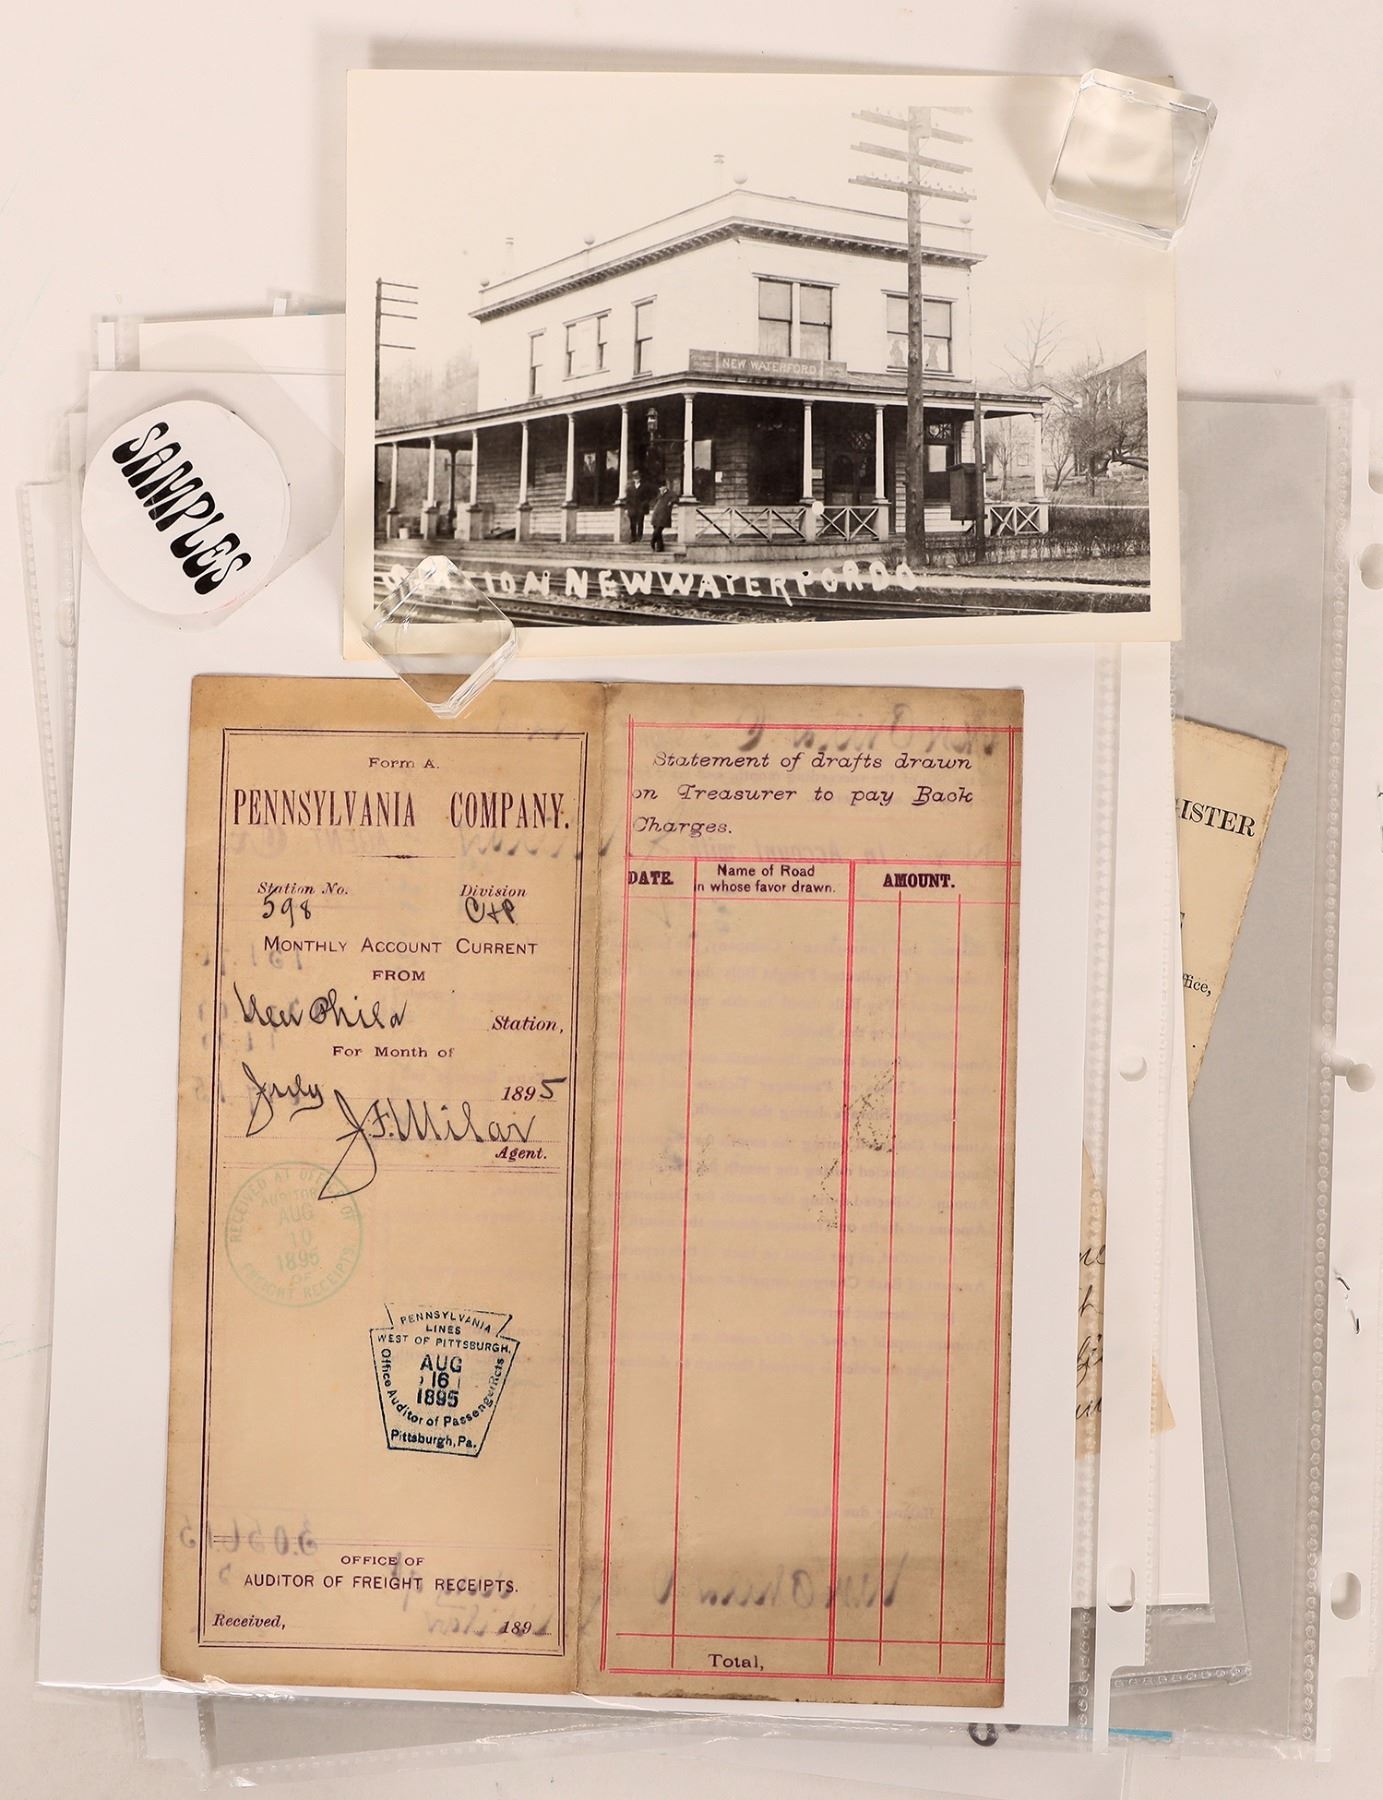 NEW WATERFORD
STATION NEW WATERFORD O
SAMPLES
Form A.
PENNSYLVANIA COMPANY.
Station No. Division
598 C&P
MONTHLY ACCOUNT CURRENT
FROM
New Chila Station,
For Month of
July 1895
J.F. Milar
Agent.
RECEIVED AT OFFICE OF
AUDITOR
AUG
10
1895
OF
FREIGHT RECEIPTS.
PENNSYLVANIA
LINES
WEST OF PITTSBURGH.
AUG
16
1895
Office Auditor of Passenger Rcts
Pittsburgh, Pa.
OFFICE OF
AUDITOR OF FREIGHT RECEIPTS.
Received, 189
Statement of drafts drawn
on Treasurer to pay Back
Charges.
DATE. Name of Road in whose favor drawn. AMOUNT.
Total,
ISTER
ffice,